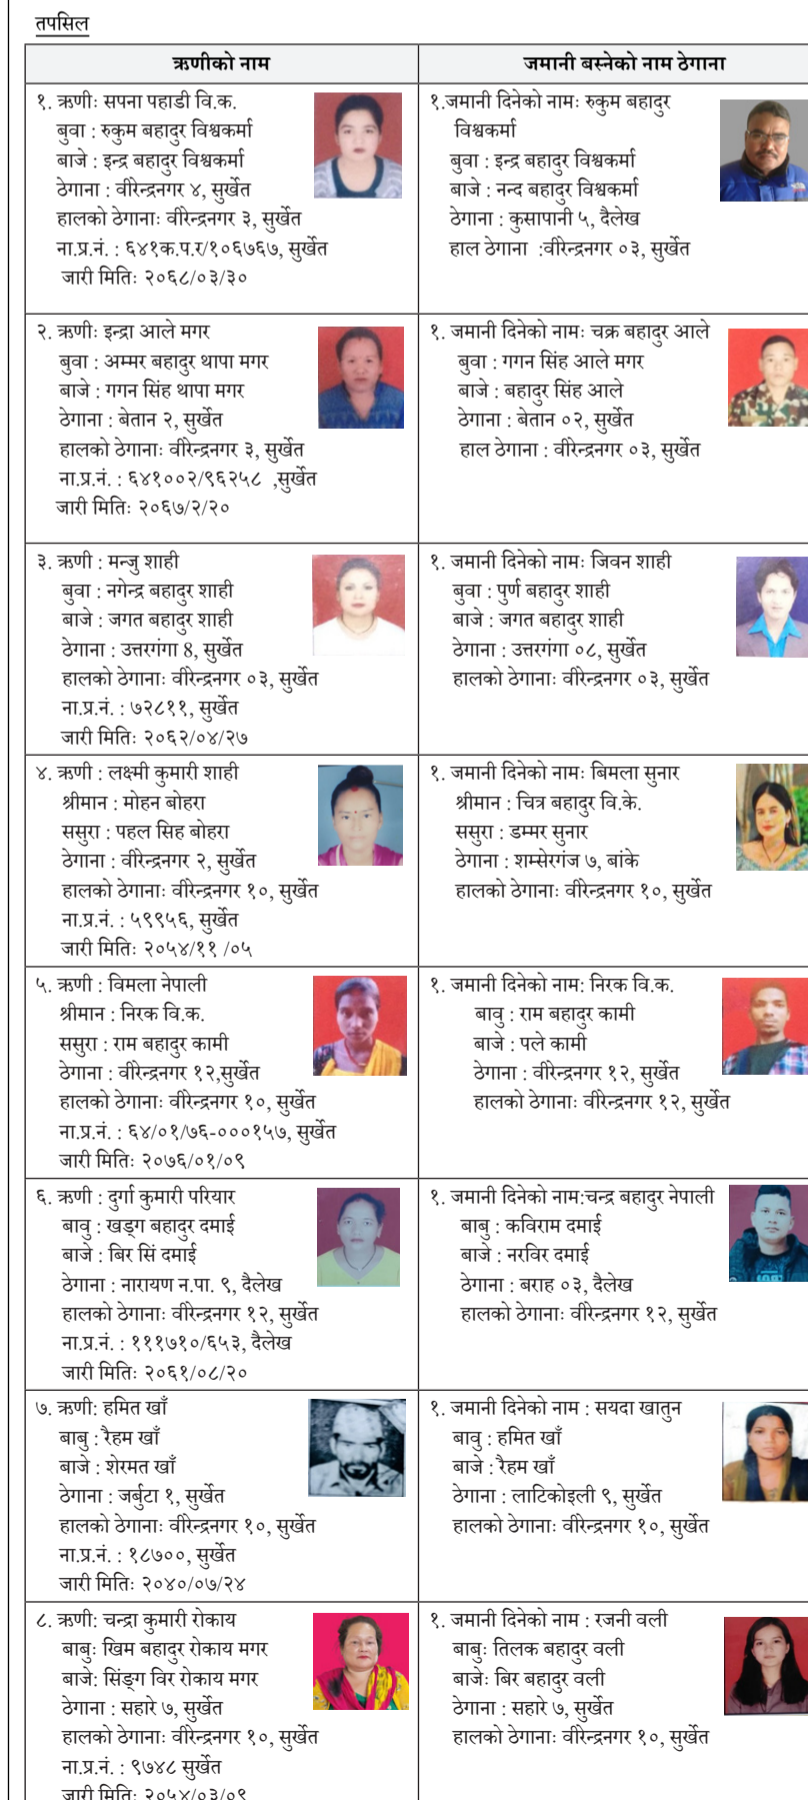 तपसिल
ऋणीको नाम
जमानी बस्नेको नाम ठेगाना
१. ऋणीः सपना पहाडी वि.क.
बुवा : रुकुम बहादुर विश्वकर्मा
बाजे : इन्द्र बहादुर विश्वकर्मा
ठेगाना : वीरेन्द्रनगर ४, सुर्खेत
हालको ठेगानाः वीरेन्द्रनगर ३, सुर्खेत
ना.प्र.नं. : ६४१क.प.र/१०६७६७, सुर्खेत
जारी मितिः २०६८/०३/३०
१.जमानी दिनेको नामः रुकुम बहादुर
विश्वकर्मा
बुवा : इन्द्र बहादुर विश्वकर्मा
बाजे : नन्द बहादुर विश्वकर्मा
ठेगाना : कुसापानी ५, दैलेख
हाल ठेगाना :वीरेन्द्रनगर ०३, सुर्खेत
२. ऋणीः इन्द्रा आले मगर
बुवा : अम्मर बहादुर थापा मगर
बाजे : गगन सिंह थापा मगर
ठेगाना : बेतान २, सुर्खेत
हालको ठेगानाः वीरेन्द्रनगर ३, सुर्खेत
ना.प्र.नं. : ६४१००२/९६२५८ ,सुर्खेत
जारी मितिः २०६७/२/२०
१. जमानी दिनेको नामः चक्र बहादुर आले
बुवा : गगन सिंह आले मगर
बाजे : बहादुर सिंह आले
ठेगाना : बेतान ०२, सुर्खेत
हाल ठेगाना : वीरेन्द्रनगर ०३, सुर्खेत
३. ऋणी : मन्जु शाही
बुवा : नगेन्द्र बहादुर शाही
बाजे : जगत बहादुर शाही
ठेगाना : उत्तरगंगा 8, सुर्खेत
हालको ठेगानाः वीरेन्द्रनगर ०३, सुर्खेत
ना.प्र.नं. : ७२८११, सुर्खेत
जारी मितिः २०६२/०४/२७
१. जमानी दिनेको नामः जिवन शाही
बुवा : पुर्ण बहादुर शाही
बाजे : जगत बहादुर शाही
ठेगाना : उत्तरगंगा ०८, सुर्खेत
हालको ठेगानाः वीरेन्द्रनगर ०३, सुर्खेत
४. ऋणी : लक्ष्मी कुमारी शाही
श्रीमान : मोहन बोहरा
ससुरा : पहल सिह बोहरा
ठेगाना : वीरेन्द्रनगर २, सुर्खेत
हालको ठेगानाः वीरेन्द्रनगर १०, सुर्खेत
ना.प्र.नं. : ५९९५६, सुर्खेत
जारी मितिः २०५४/११ /०५
१. जमानी दिनेको नामः बिमला सुनार
श्रीमान : चित्र बहादुर वि.के.
ससुरा : डम्मर सुनार
ठेगाना : शम्सेरगंज ७, बांके
हालको ठेगानाः वीरेन्द्रनगर १०, सुर्खेत
५. ऋणी : विमला नेपाली
श्रीमान : निरक वि.क.
ससुरा : राम बहादुर कामी
ठेगाना : वीरेन्द्रनगर १२,सुर्खेत
हालको ठेगानाः वीरेन्द्रनगर १०, सुर्खेत
ना.प्र.नं. : ६४/०१/७६-०००१५७, सुर्खेत
जारी मितिः २०७६/०१/०९
१. जमानी दिनेको नाम: निरक वि.क.
बावु : राम बहादुर कामी
बाजे : पले कामी
ठेगाना : वीरेन्द्रनगर १२, सुर्खेत
हालको ठेगानाः वीरेन्द्रनगर १२, सुर्खेत
६. ऋणी : दुर्गा कुमारी परियार
बावु : खड्ग बहादुर दमाई
बाजे : बिर सिं दमाई
ठेगाना : नारायण न.पा. ९, दैलेख
हालको ठेगानाः वीरेन्द्रनगर १२, सुर्खेत
ना.प्र.नं. : १११७१०/६५३, दैलेख
जारी मितिः २०६१/०८/२०
१. जमानी दिनेको नाम:चन्द्र बहादुर नेपाली
बाबु : कविराम दमाई
बाजे : नरविर दमाई
ठेगाना : बराह ०३, दैलेख
हालको ठेगानाः वीरेन्द्रनगर १२, सुर्खेत
७. ऋणी: हमित खाँ
बाबु : रैहम खाँ
बाजे : शेरमत खाँ
ठेगाना : जर्बुटा १, सुर्खेत
हालको ठेगानाः वीरेन्द्रनगर १०, सुर्खेत
ना.प्र.नं. : १८७००, सुर्खेत
जारी मितिः २०४०/०७/२४
१. जमानी दिनेको नाम : सयदा खातुन
बावु : हमित खाँ
बाजे : रैहम खाँ
ठेगाना : लाटिकोइली ९, सुर्खेत
हालको ठेगानाः वीरेन्द्रनगर १०, सुर्खेत
८. ऋणी: चन्द्रा कुमारी रोकाय
बाबुः खिम बहादुर रोकाय मगर
बाजे: सिंङ्ग विर रोकाय मगर
ठेगाना : सहारे ७, सुर्खेत
हालको ठेगानाः वीरेन्द्रनगर १०, सुर्खेत
ना.प्र.नं. : ९७४८ सुर्खेत
जारी मितिः २०५४/०३/०९
१. जमानी दिनेको नाम : रजनी वली
बाबुः तिलक बहादुर वली
बाजेः बिर बहादुर वली
ठेगाना : सहारे ७, सुर्खेत
हालको ठेगानाः वीरेन्द्रनगर १०, सुर्खेत